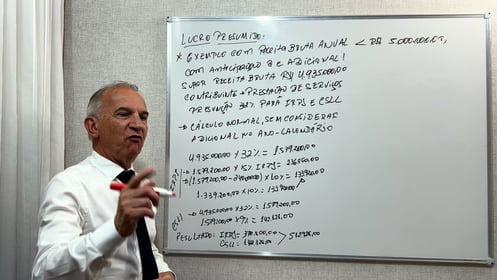 LUCRO PRESUMIDO:
* EXEMPLO COM RECEITA BRUTA ANUAL < R$ 5.000.000,00,
COM ANTECIPAÇÃO DE ADICIONAL!
SUPOR RECEITA BRUTA R$ 4.935.000,00
CONTRIBUINTE → PRESTAÇÃO DE SERVIÇOS
PRESUNÇÃO 32% PARA IRPJ E CSLL
→ CÁLCULO NORMAL, SEM CONSIDERAR
ADICIONAL NO ANO-CALENDÁRIO
4.935.000,00 × 32% = 1.579.200,00
IRPJ → 1.579.200,00 × 15% IRPJ = 236.880,00
→ (1.579.200,00 - 240.000,00) × 10% = 133.920,00
1.339.200,00 × 10% = 133.920,00
CSLL → 4.935.000,00 × 32% = 1.579.200,00
1.579.200,00 × 9% = 142.128,00
RESULTADO: IRPJ = 370.800,00
CSLL: 142.128,00 > 512.928,00